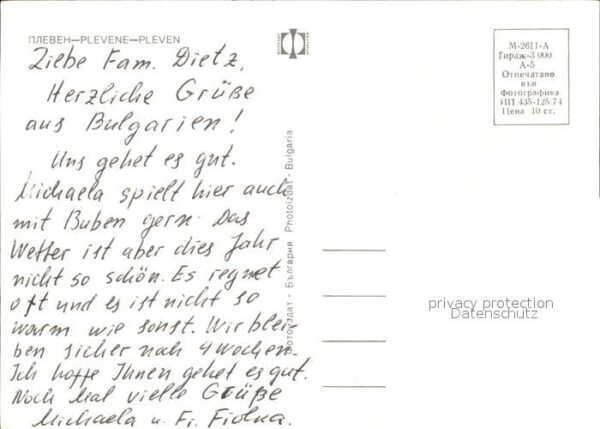 ПЛЕВЕН—PLEVENE—PLEVEN
Ziebe Fam. Dietz,
Herzliche Grüße
aus Bulgarien!
Uns gehet es gut.
Michaela spielt hier auch
mit Buben gern. Das
Wetter ist aber dies Jahr
nicht so schön. Es regnet
oft und es ist nicht so
warm wie sonst. Wir blei-
ben sicher noch 4 Wochen.
Ich hoffe Ihnen gehet es gut.
Noch Mal vielle Grüße
Michaela u. Fr.
Фотоиздат - България Photoizdat - Bulgaria
М-2611-А
Тираж-3 000
А-5
Отпечатано
във
Фотографика
ИП 435-125-74
Цена 10 ст.
privacy protection
Datenschutz